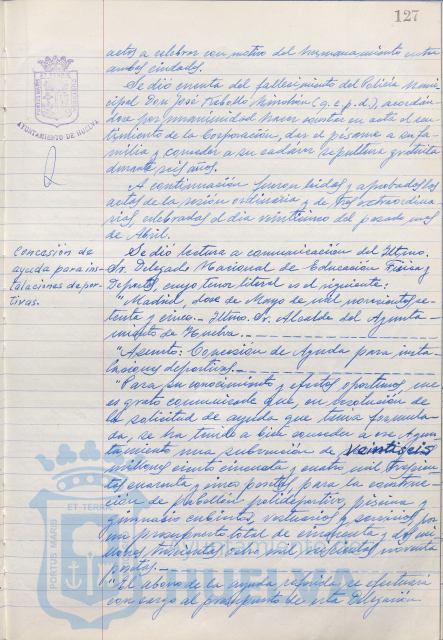 127
AYUNTAMIENTO DE HUELVA
actos a celebrar con motivo del hermanamiento entre
ambas ciudades.
Se dió cuenta del fallecimiento del Policía Muni-
cipal Don José Rebollo (q.e.p.d.), acordán-
dose por unanimidad hacer constar en acta el sen-
timiento de la Corporación, dar el pésame a su fa-
milia y conceder a su cadáver sepultura gratuita
durante seis años.
A continuación fueron leidas y aprobadas las
actas de la sesión ordinaria y de extraordina-
rias celebradas el día veinticinco del pasado mes
de Abril.
Concesión de
ayuda para ins-
talaciones depor-
tivas.
Se dió lectura a comunicación del Iltmo.
Sr. Delegado Nacional de Educación Física y
Deportes, cuyo tenor literal es el siguiente:
"Madrid, doce de Mayo de mil novecientos se-
tenta y cinco.- Iltmo. Sr. Alcalde del Ayunta-
miento de Huelva.
"Asunto: Concesión de Ayuda para insta-
laciones deportivas.-
"Para su conocimiento y efectos oportunos, me
es grato comunicarle que, en resolución de
la solicitud de ayuda que tenía formula-
da, se ha tenido a bien conceder a ese Ayun-
tamiento una subvención de veintiseis
millones ciento cincuenta y cuatro mil trescien-
tas cuarenta y cinco pesetas para la construc-
ción de pabellón polideportivo, piscina y
gimnasio cubiertos, vestuarios y servicios por
un presupuesto total de cincuenta y dos mi-
llones trescientas ocho mil seiscientas noventa
pesetas.-
"El abono de la ayuda referida se efectuará
con cargo al presupuesto de esta Delegación
ET TERRAE
PORTUS MARIS
HUELVA